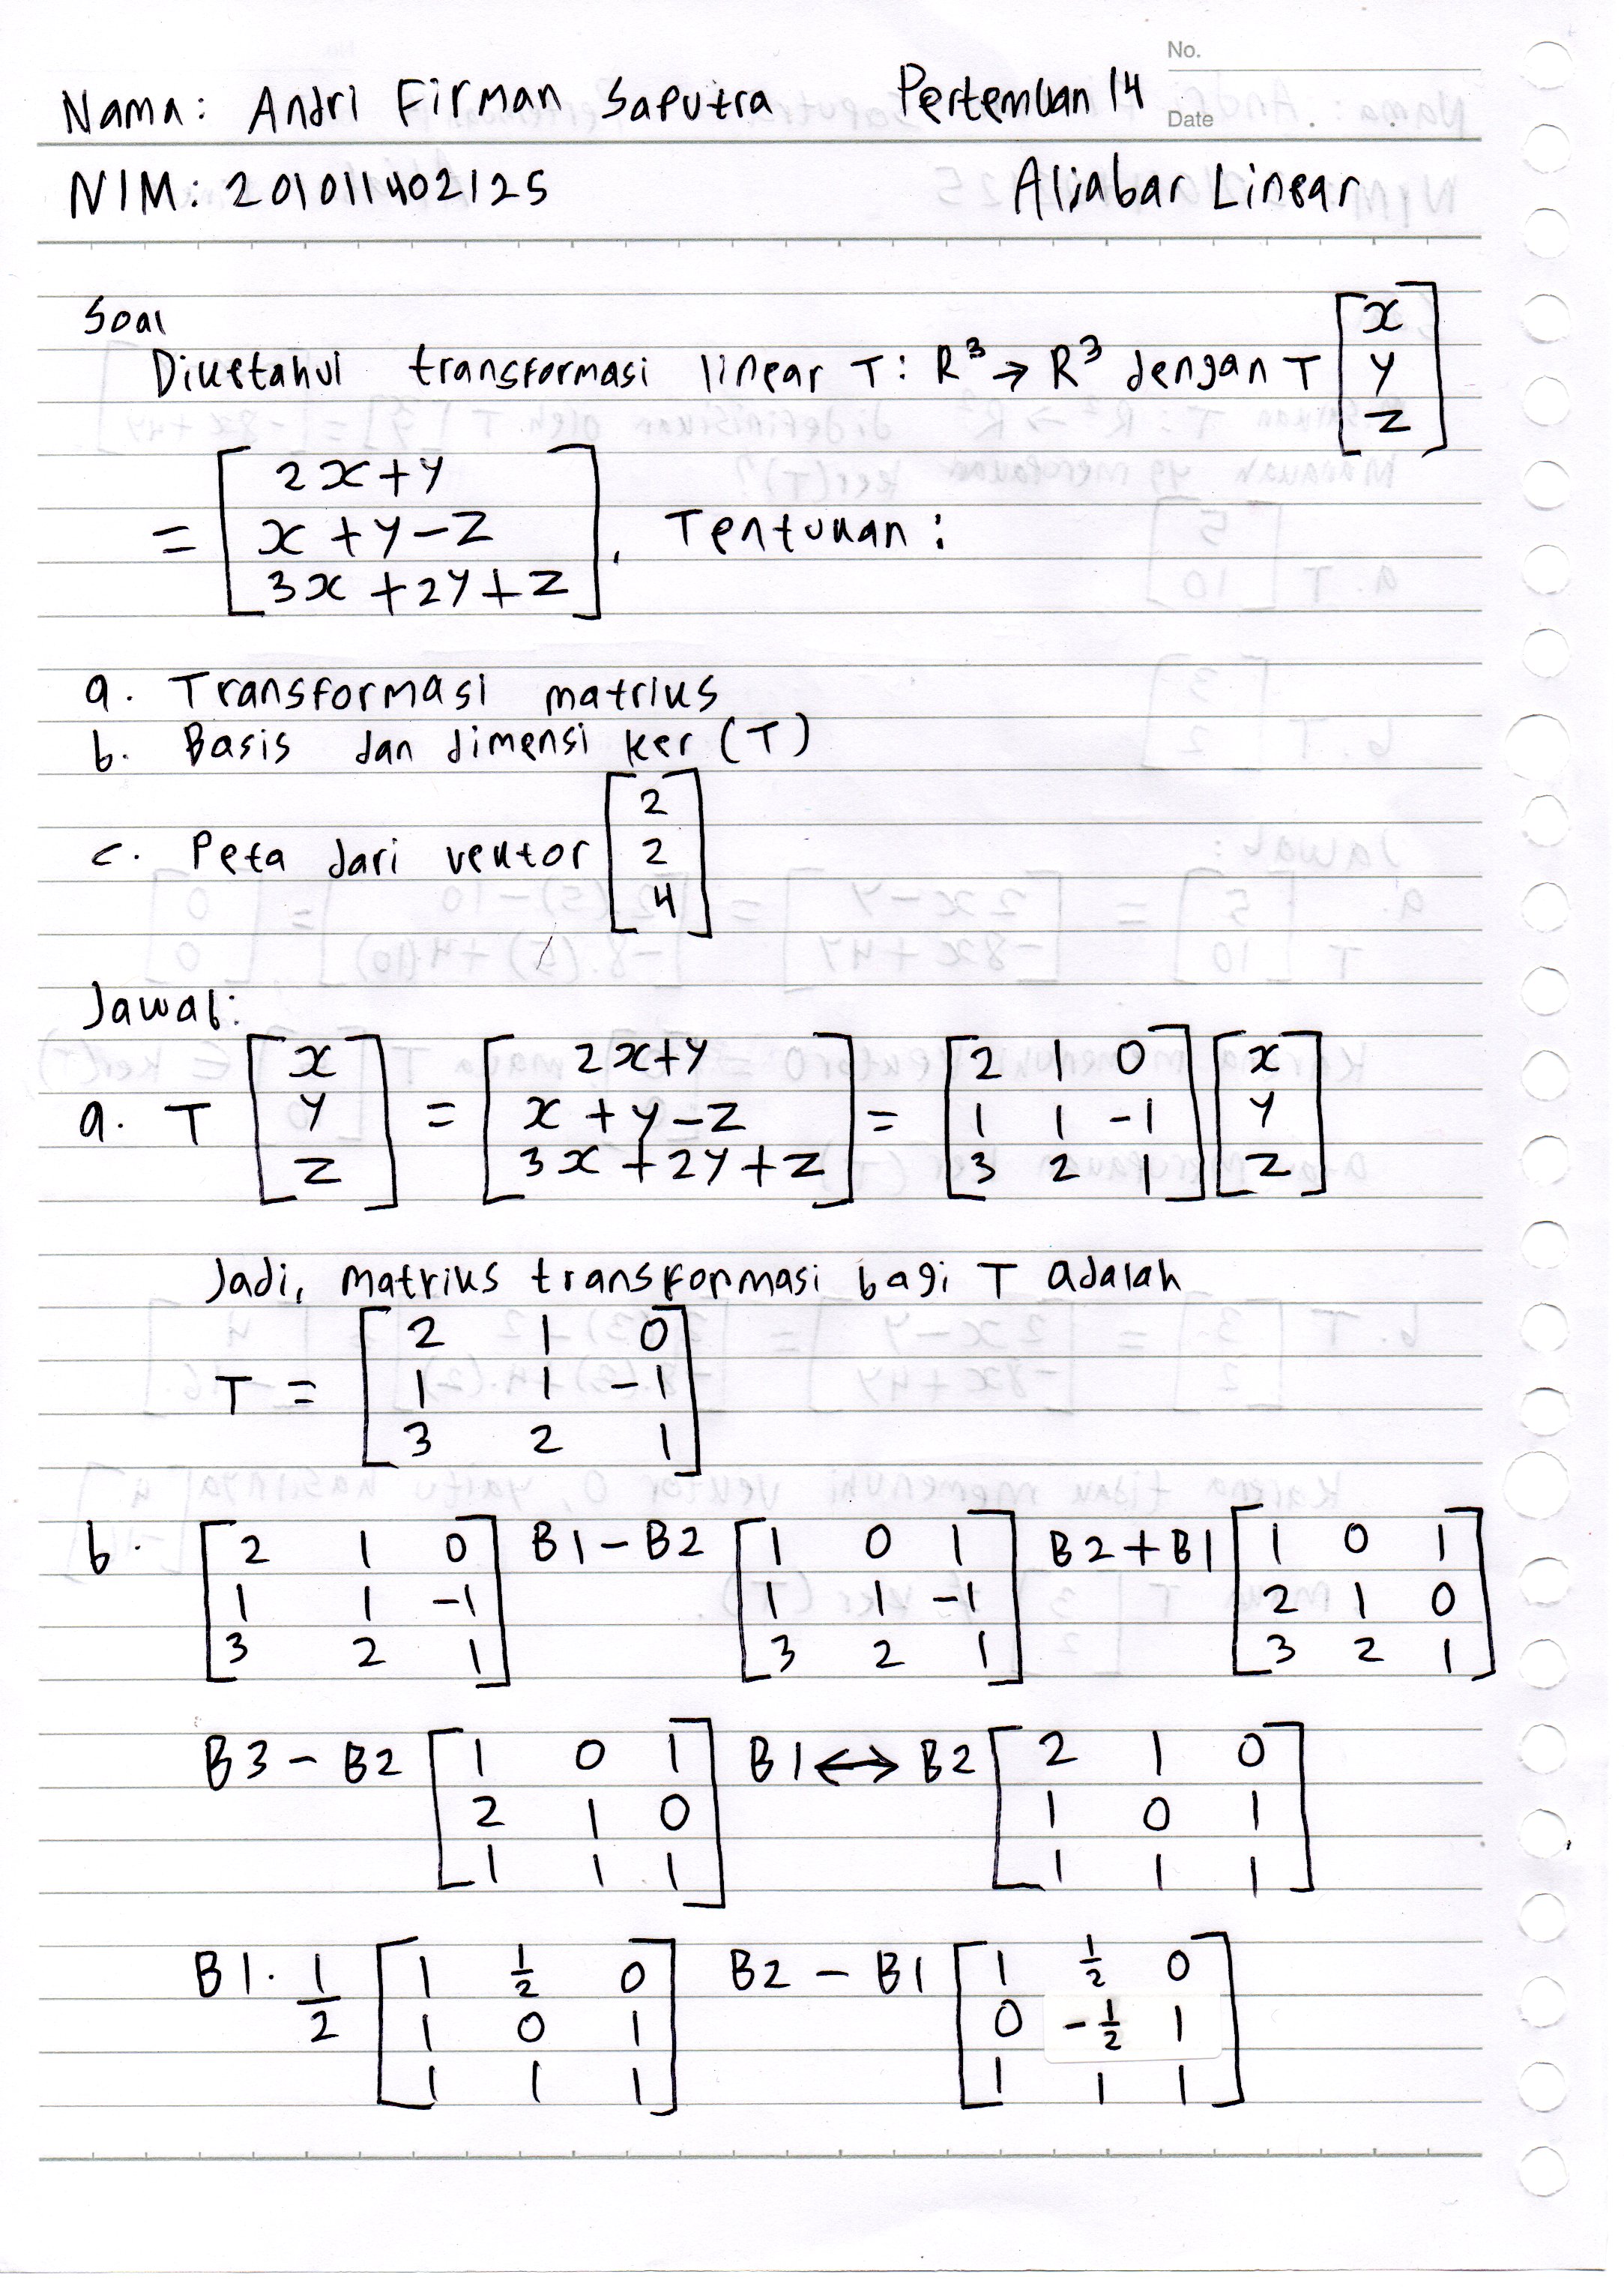 No.
Nama: Andri Firman Saputra Pertemuan 14
Date
NIM: 201011402125 Aljabar Linear
Soal
Diketahui transformasi linear T: R³ → R³ dengan T [x y z]
= [2x+y
x+y-z
3x+2y+z]. Tentukan:
a. Transformasi matriks
b. Basis dan dimensi ker (T)
c. Peta dari vektor [2 2 4]
Jawab:
a. T [x y z] = [2x+y
x+y-z
3x+2y+z] = [2 1 0
1 1 -1
3 2 1] [x y z]
Jadi, matriks transformasi bagi T adalah
T = [2 1 0
1 1 -1
3 2 1]
b. [2 1 0
1 1 -1
3 2 1] B1-B2 [1 0 1
1 1 -1
3 2 1] B2+B1 [1 0 1
2 1 0
3 2 1]
B3 - B2 [1 0 1
2 1 0
1 1 1] B1 ↔ B2 [2 1 0
1 0 1
1 1 1]
B1. 1/2 [1 1/2 0
1 0 1
1 1 1] B2 - B1 [1 1/2 0
0 -1/2 1
1 1 1]